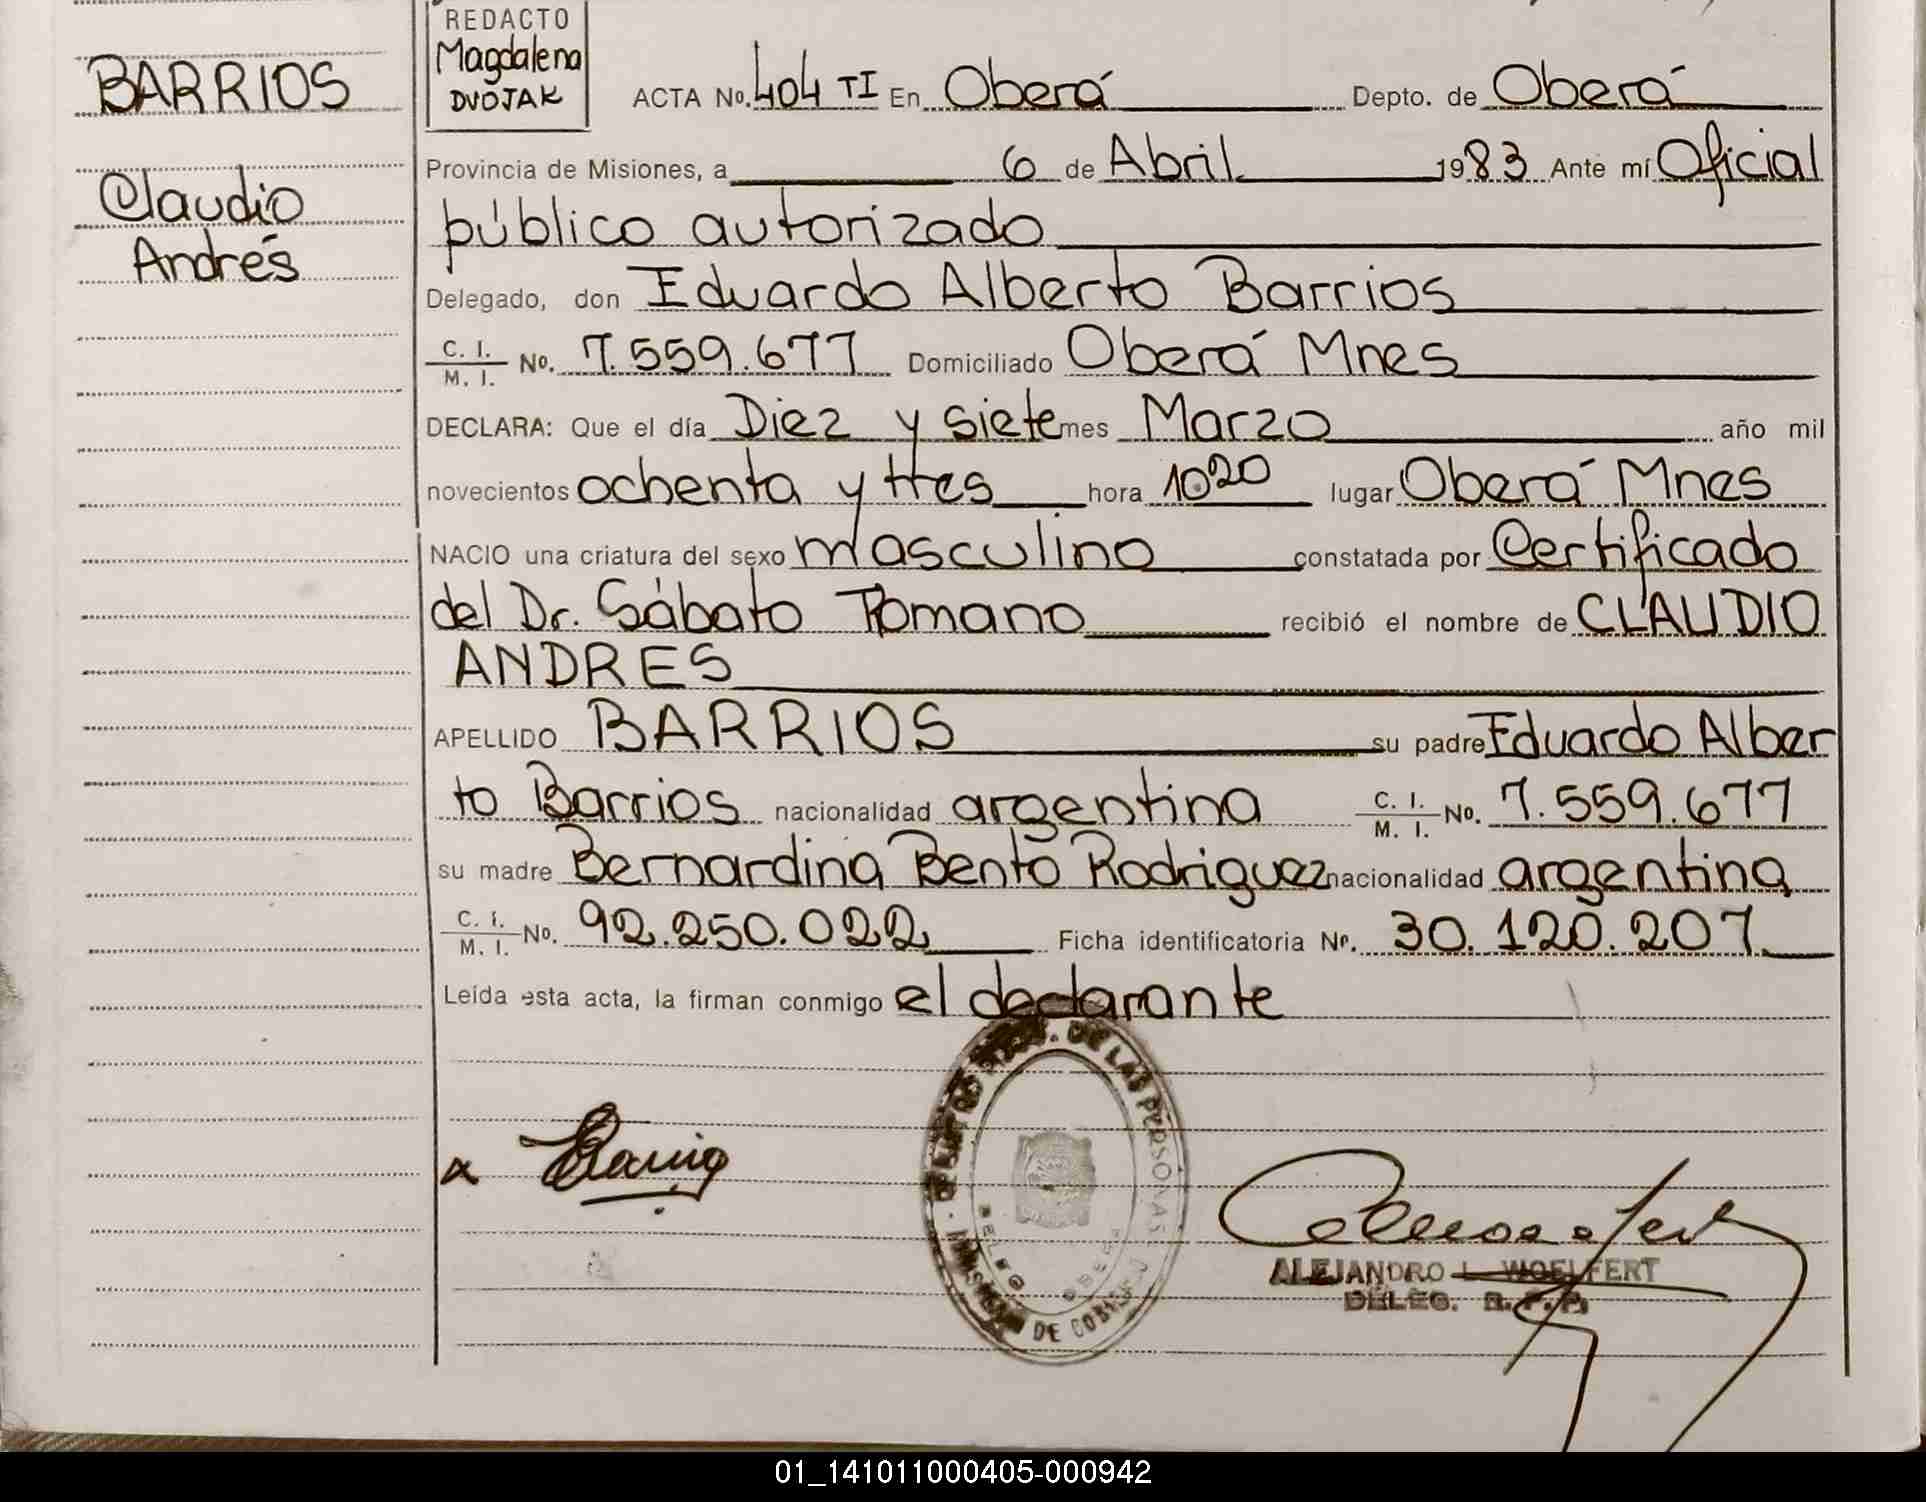 BARRIOS
Claudio
Andrés
REDACTO
Magdalena
DVOJAK
ACTA No. 404 TI En Oberá Depto. de Oberá
Provincia de Misiones, a 6 de Abril 1983 Ante mí Oficial
público autorizado
Delegado, don Eduardo Alberto Barrios
C. I. / M. I. No. 7.559.677 Domiciliado Oberá Mnes
DECLARA: Que el día Diez y siete mes Marzo año mil
novecientos ochenta y tres hora 10 20 lugar Oberá Mnes
NACIO una criatura del sexo masculino constatada por Certificado
del Dr. Sábato Romano recibió el nombre de CLAUDIO
ANDRES
APELLIDO BARRIOS su padre Eduardo Alber
to Barrios nacionalidad argentina C. I. / M. I. No. 7.559.677
su madre Bernardina Bento Rodriguez nacionalidad argentina
C. I. / M. I. No. 92.250.022 Ficha identificatoria Nº. 30.120.207
Leída esta acta, la firman conmigo el declarante
DE LAS PERSONAS
OBERA
ALEJANDRO L. WOELFERT
DELEG. R. P. P.
01_141011000405-000942